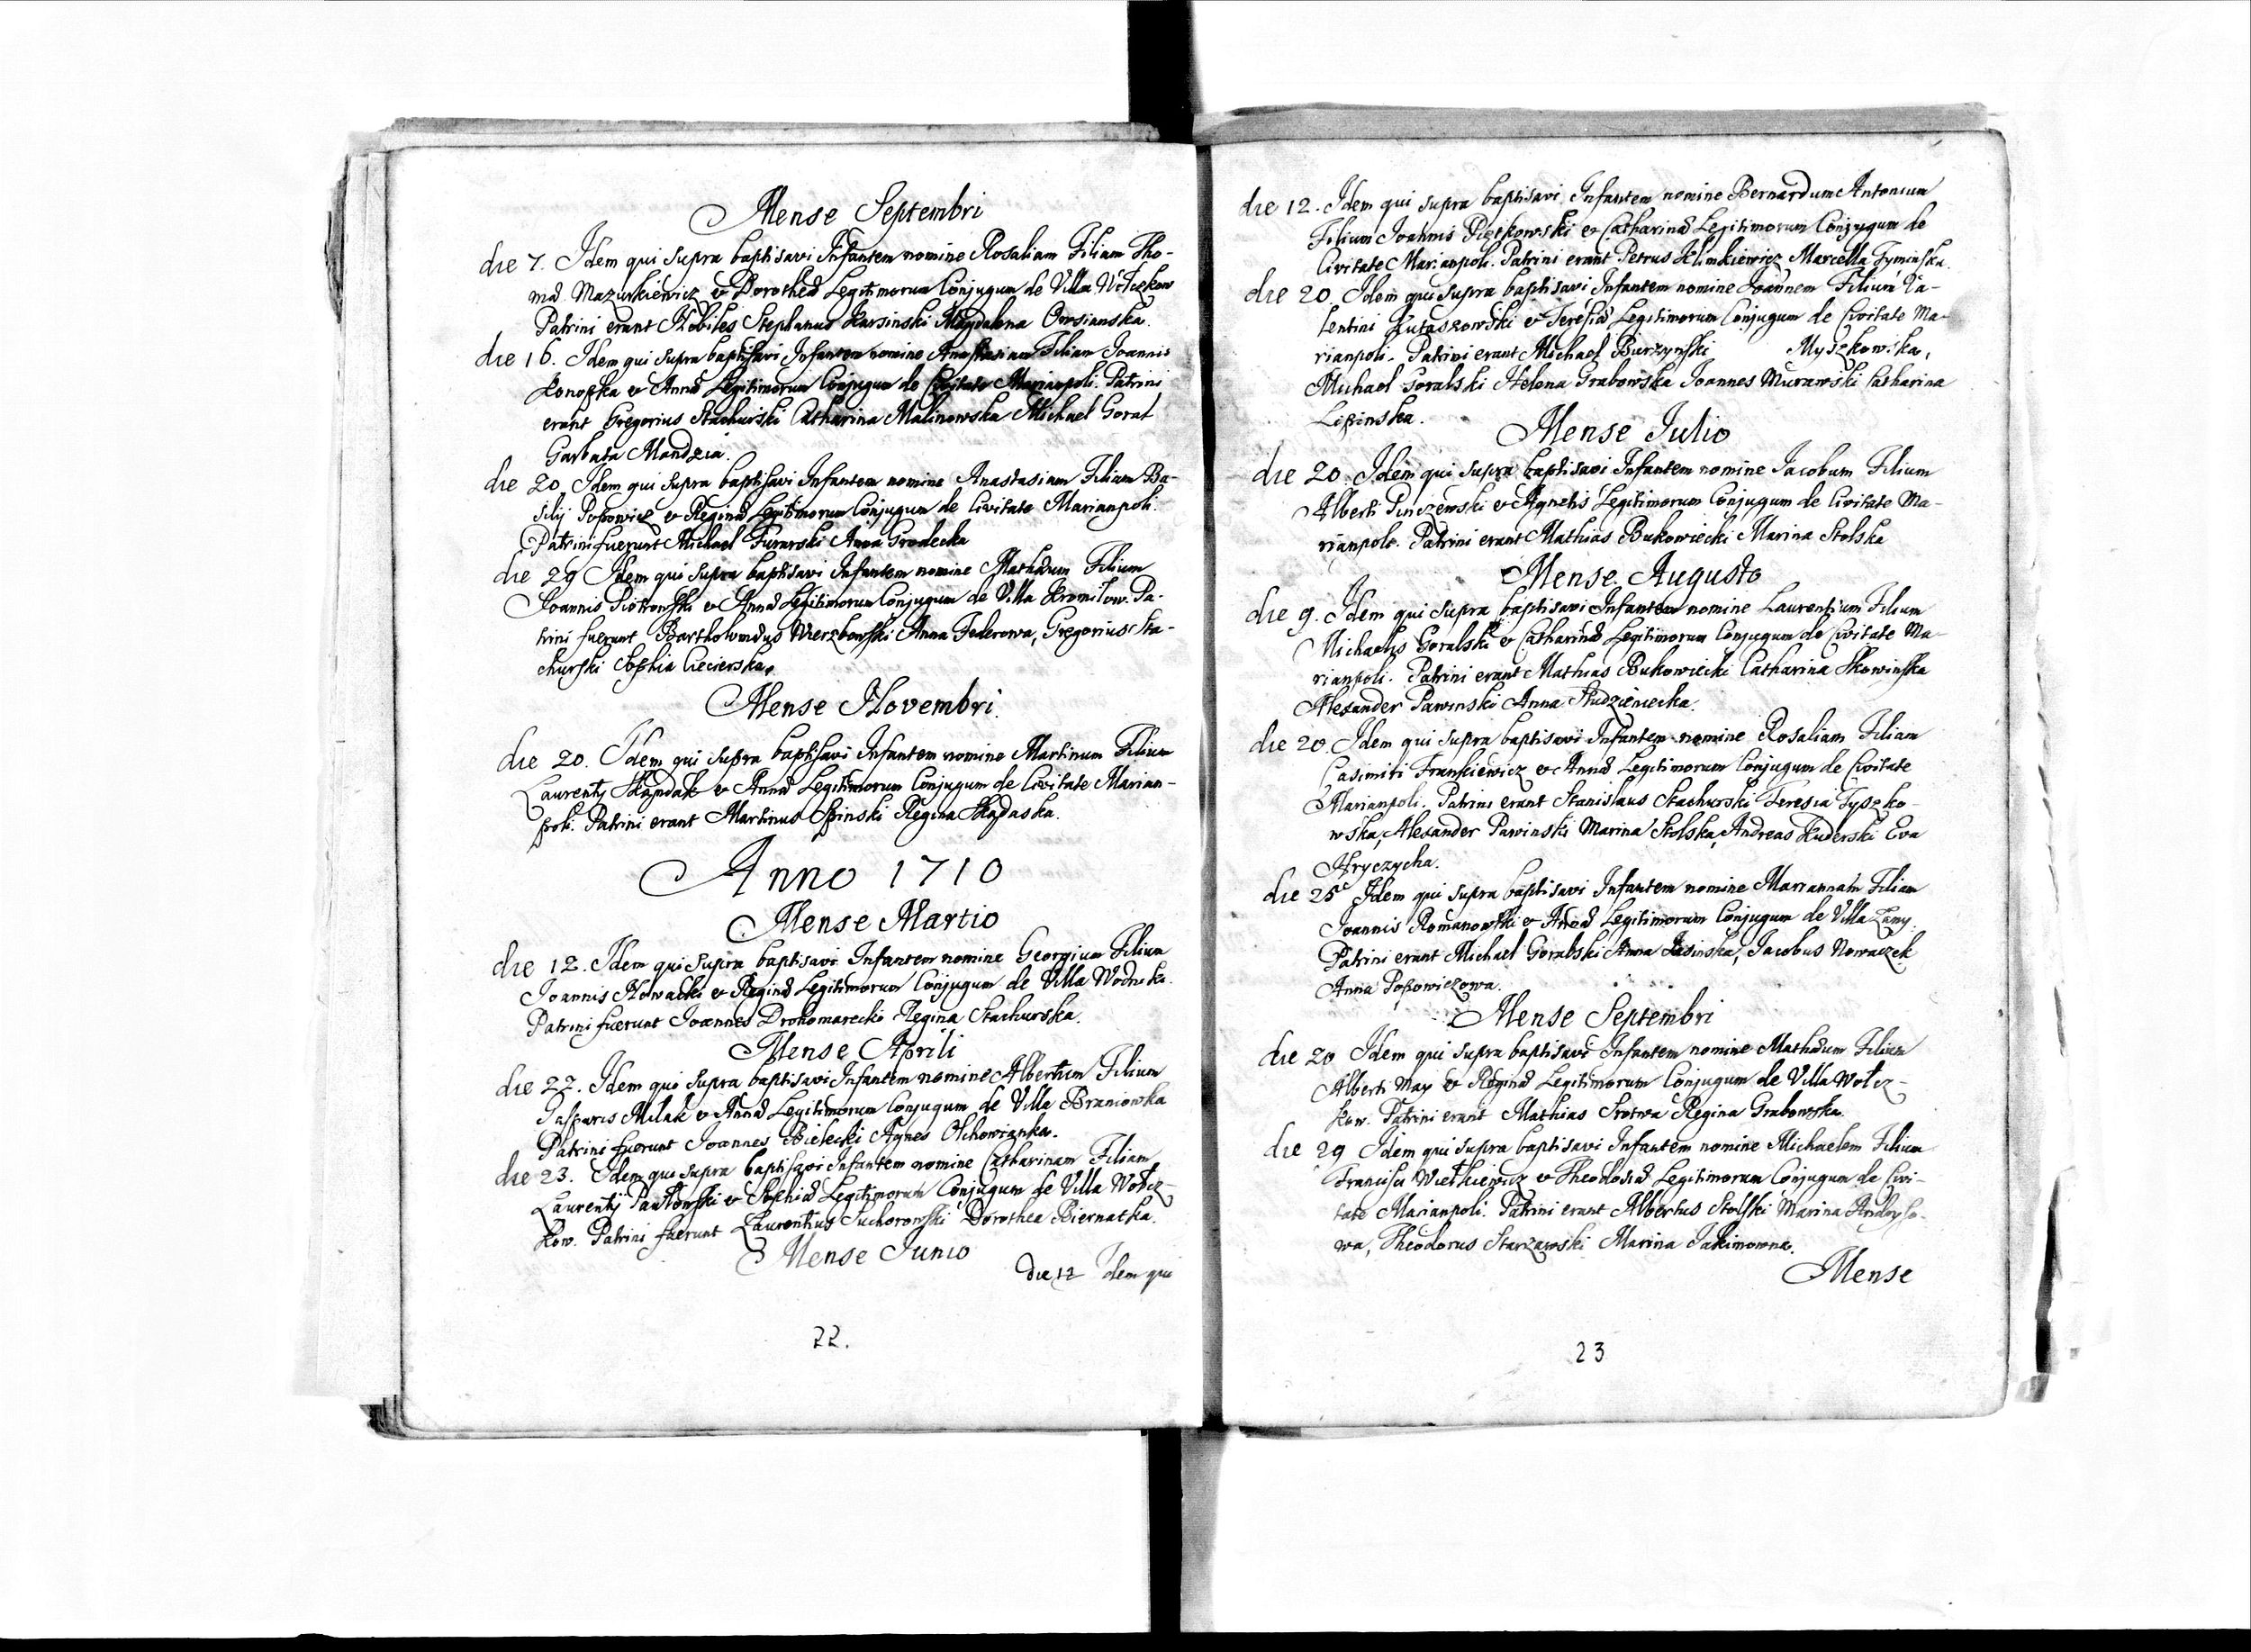 Mense Septembri
die 7. Idem qui supra baptisavi Infantem nomine Rosaliam Filiam Tho-
mæ Mazurkiewicz & Dorotheæ Legitimorum Conjugum de Villa Wołczkow
Patrini erant Nobiles Stephanus Karsinski Magdalena Owsianska.
die 16. Idem qui supra baptisavi Infantem nomine Anastasiam Filiam Joannis
Konopka & Annæ Legitimorum Conjugum de Civitate Marianpoli. Patrini
erant Gregorius Stachurski Catharina Malinowska Michael Goral
Mandzia.
die 20 Idem qui supra baptisavi Infantem nomine Anastasiam Filiam Ba-
silij Popowicz & Reginæ Legitimorum Conjugum de Civitate Marianpoli.
Patrini fuerunt Michael Anna Grodecka
die 29 Idem qui supra baptisavi Infantem nomine Mathæum Filium
Joannis Piotrowski & Annæ Legitimorum Conjugum de Villa Kromiłow. Pa-
trini fuerunt Bartholomæus Wierzbowski Anna Federowa, Gregorius Sta-
churski Sophia Ciecierska.
Mense Novembri.
die 20. Idem qui supra baptisavi Infantem nomine Martinum Filium
Laurentij & Annæ Legitimorum Conjugum de Civitate Marian-
poli. Patrini erant Martinus Regina
Anno 1710
Mense Martio
die 12. Idem qui supra baptisavi Infantem nomine Georgium Filium
Joannis Nowacki & Reginæ Legitimorum Conjugum de Villa
Patrini fuerunt Joannes Drohomarecki Regina Stachurska.
Mense Aprili
die 22. Idem qui supra baptisavi Infantem nomine Albertum Filium
Casparis Milak & Annæ Legitimorum Conjugum de Villa Braniowka
Patrini fuerunt Joannes Bielecki Agnes Olchowianka.
die 23. Idem qui supra baptisavi Infantem nomine Catharinam Filiam
Laurentij Pawłowski & Sophiæ Legitimorum Conjugum de Villa Wołcz-
kow. Patrini fuerunt Laurentius Suchorowski Dorothea Biernatka.
Mense Junio
die 12 Idem qui
22.
die 12. Idem qui supra baptisavi Infantem nomine Bernardum Antonium
Filium Joannis Piętkowski & Catharinæ Legitimorum Conjugum de
Civitate Marianpoli. Patrini erant Petrus Klimkiewicz Marcella Tyminska.
die 20. Idem qui supra baptisavi Infantem nomine Joannem Filium Va-
lentini Łukaszowski & Teresiæ Legitimorum Conjugum de Civitate Ma-
rianpoli. Patrini erant Michael Burzynski Myszkowska,
Michael Goralski Helena Grabowska Joannes Murawski Catharina
Lipinska.
Mense Julio
die 20. Idem qui supra baptisavi Infantem nomine Jacobum Filium
Alberti Pinczewski & Agnetis Legitimorum Conjugum de Civitate Ma-
rianpoli. Patrini erant Mathias Bukowiecki Marina Stolska
Mense Augusto
die 9. Idem qui supra baptisavi Infantem nomine Laurentium Filium
Michaelis Goralski & Catharinæ Legitimorum Conjugum de Civitate Ma-
rianpoli. Patrini erant Mathias Bukowiecki Catharina Skowinska
Alexander Pawinski Anna Studzieniecka.
die 20. Idem qui supra baptisavi Infantem nomine Rosaliam Filiam
Casimiri Frankiewicz & Annæ Legitimorum Conjugum de Civitate
Marianpoli. Patrini erant Stanislaus Stachurski Teresia Tyszko-
wska, Alexander Pawinski Marina Stolska, Andreas Kuderski Eva
Hryczycha.
die 25 Idem qui supra baptisavi Infantem nomine Mariannam Filiam
Joannis Romanowski & Annæ Legitimorum Conjugum de Villa Łany
Patrini erant Michael Goralski Anna Jasinska, Jacobus Nowaczek
Anna Popowiczowa.
Mense Septembri
die 20 Idem qui supra baptisavi Infantem nomine Mathæum Filium
Alberti May & Reginæ Legitimorum Conjugum de Villa Wołcz-
kow. Patrini erant Mathias Srotwa Regina Grabowska.
die 29 Idem qui supra baptisavi Infantem nomine Michaelem Filium
Francisci Wiełkiewicz & Theodosiæ Legitimorum Conjugum de Civi-
tate Marianpoli. Patrini erant Albertus Stolski Marina
wa, Theodorus Starzawski Marina Jakimowna.
Mense
23